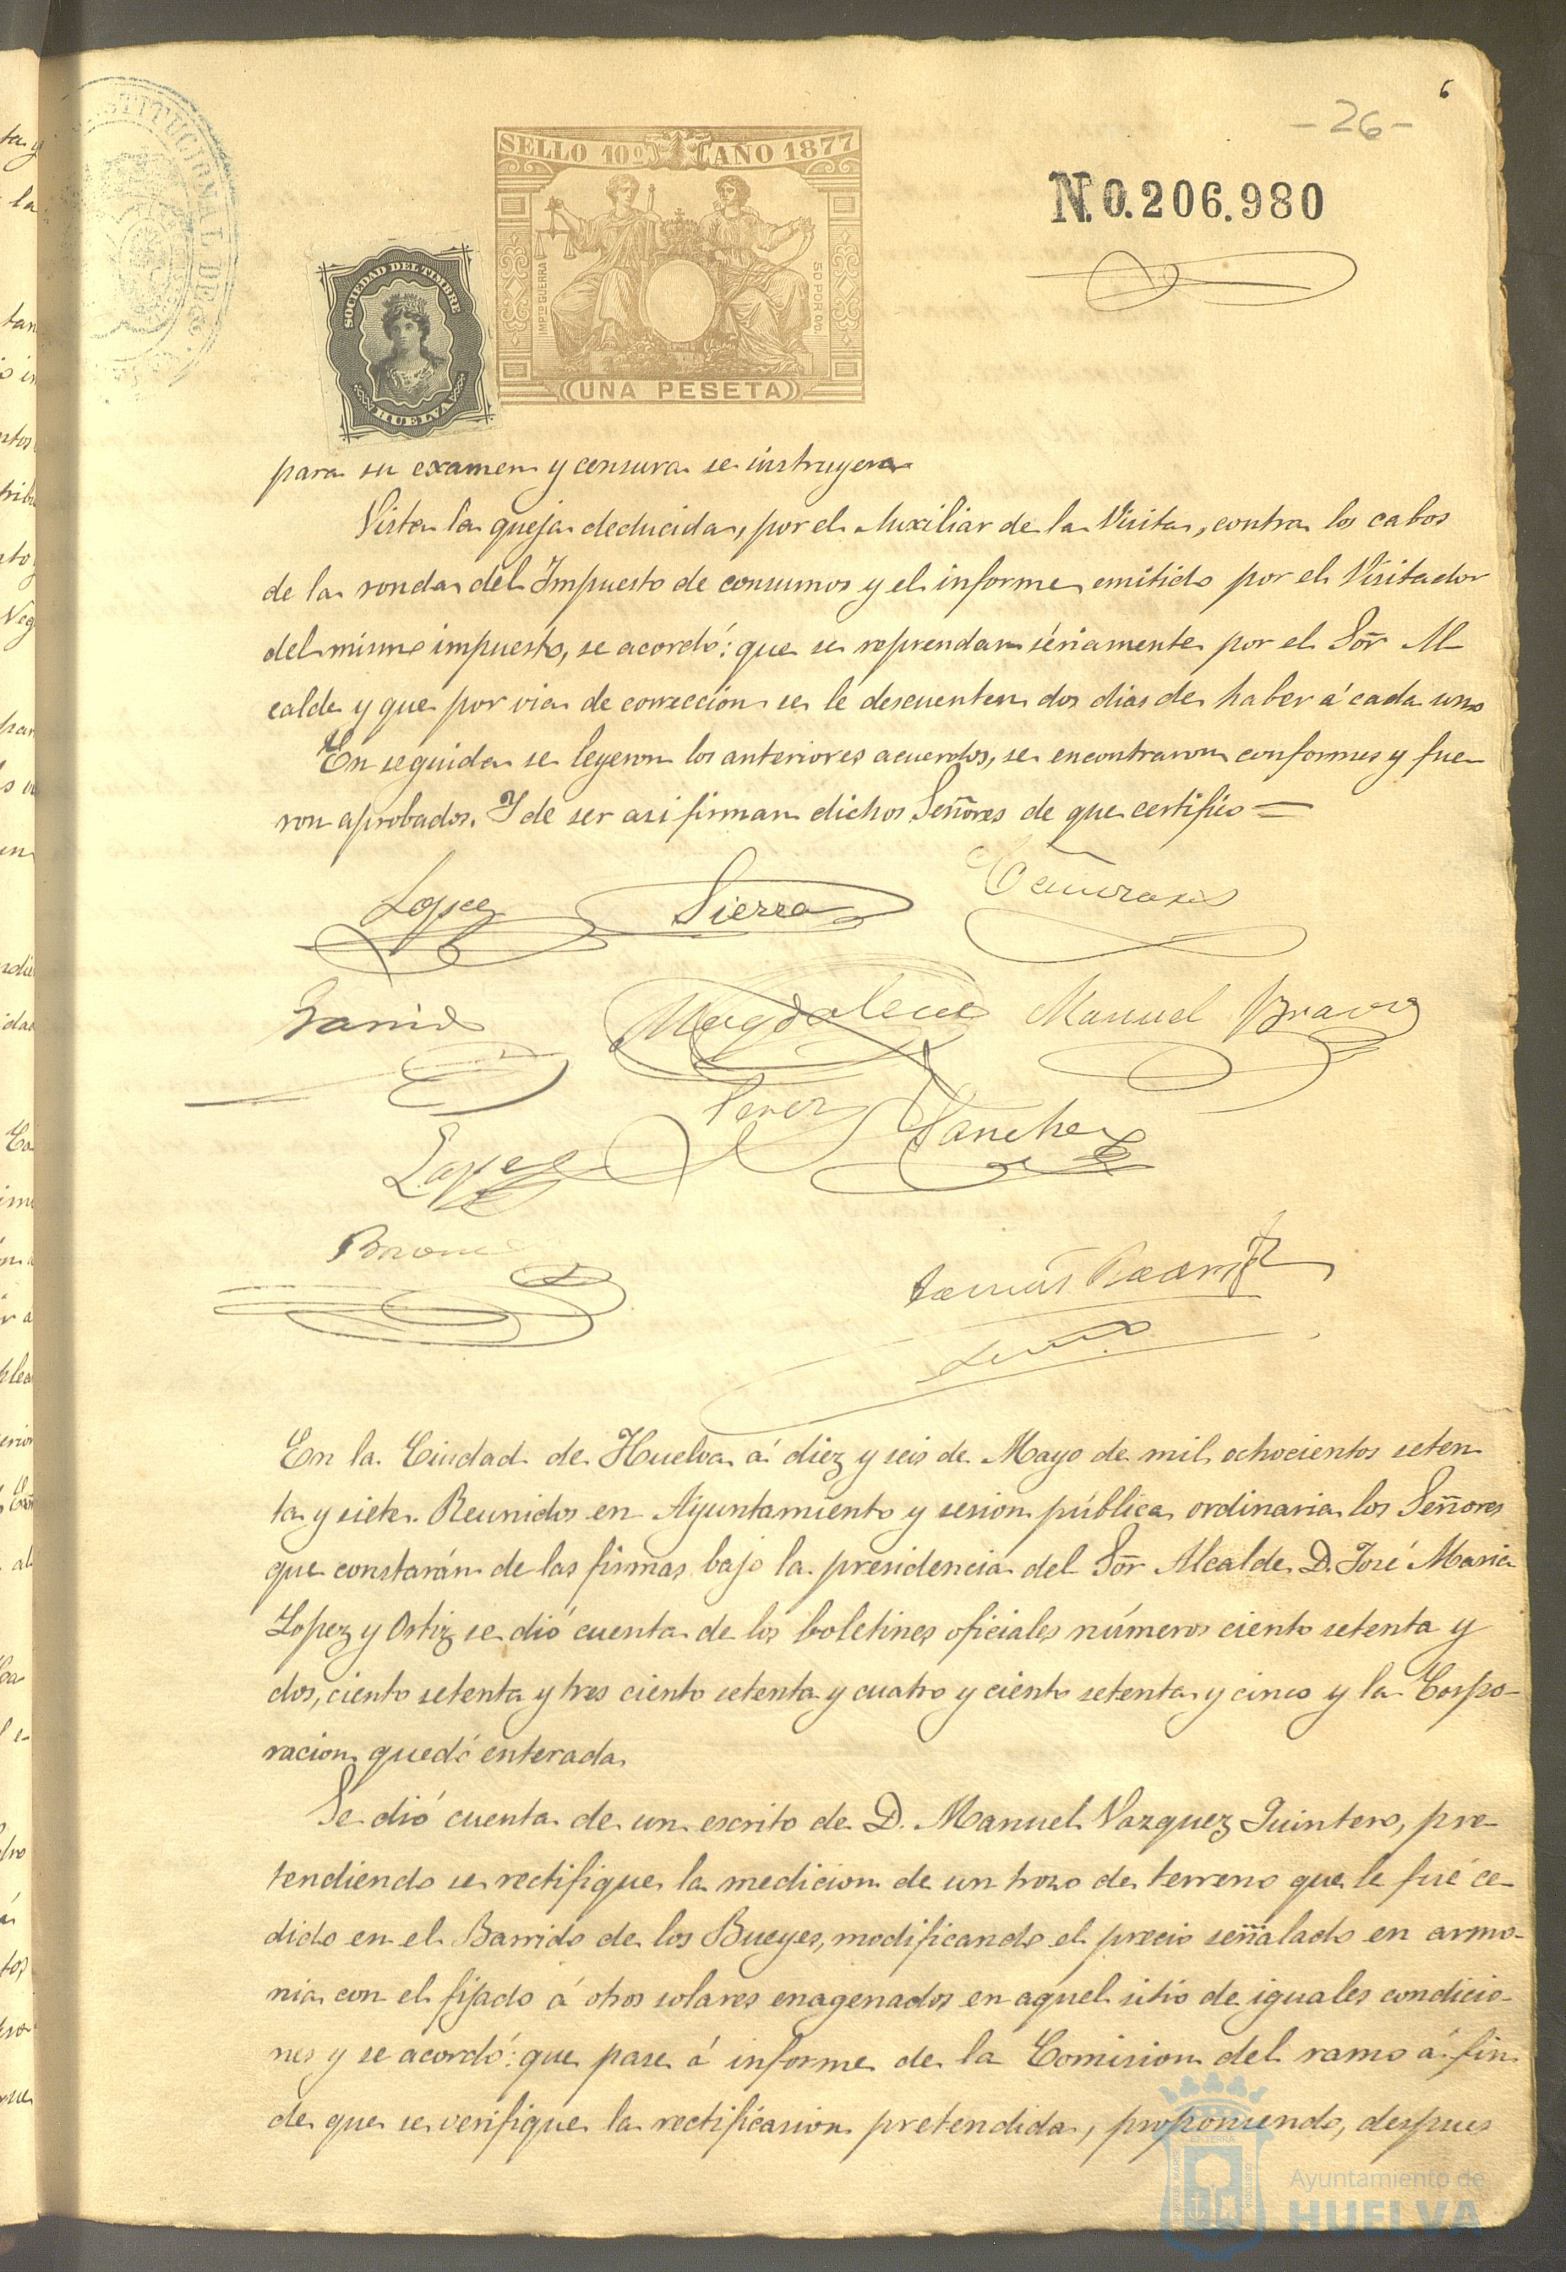 6
- 26 -
SELLO 10º AÑO 1877
N. 0.206.980
IMPTO GUERRA
50 POR 100.
SOCIEDAD DEL TIMBRE
HUELVA
UNA PESETA
para su examen y censura se instruyera
Vista la queja deducida, por el Auxiliar de la Visita, contra los cabos
de la ronda del Impuesto de consumos y el informe emitido por el Visitador
del mismo impuesto, se acordó: que se reprendan sériamente por el Sor̃ Al-
calde y que por via de corrección se le descuenten dos dias de haber á cada uno
En seguida se leyeron los anteriores acuerdos, se encontraron conformes y fue-
ron aprobados. Y de ser asi firman dichos Señores de que certifico =
Lopez Sierra
Garrido Magdalena Manuel Bravo
Perez Sanchez
Lopez
Tomás Rodrig
En la Ciudad de Huelva á diez y seis de Mayo de mil ochocientos seten-
ta y siete. Reunidos en Ayuntamiento y sesion pública ordinaria los Señores
que constarán de las firmas bajo la presidencia del Sor̃ Alcalde D. José Maria
Lopez y Ortiz se dió cuenta de los boletines oficiales números ciento setenta y
dos, ciento setenta y tres ciento setenta y cuatro y ciento setenta y cinco y la Corpo-
racion quedó enterada
Se dió cuenta de un escrito de D. Manuel Vazquez Quintero, pre-
tendiendo se rectifique la medicion de un trozo de terreno que le fué ce-
dido en el Barrido de los Bueyes, modificando el precio señalado en armo-
nia con el fijado á otros solares enagenados en aquel sitio de iguales condicio-
nes y se acordó: que pase á informe de la Comision del ramo á fin
de que se verifique la rectificasion pretendida, proponiendo, despues
Ayuntamiento de
HUELVA